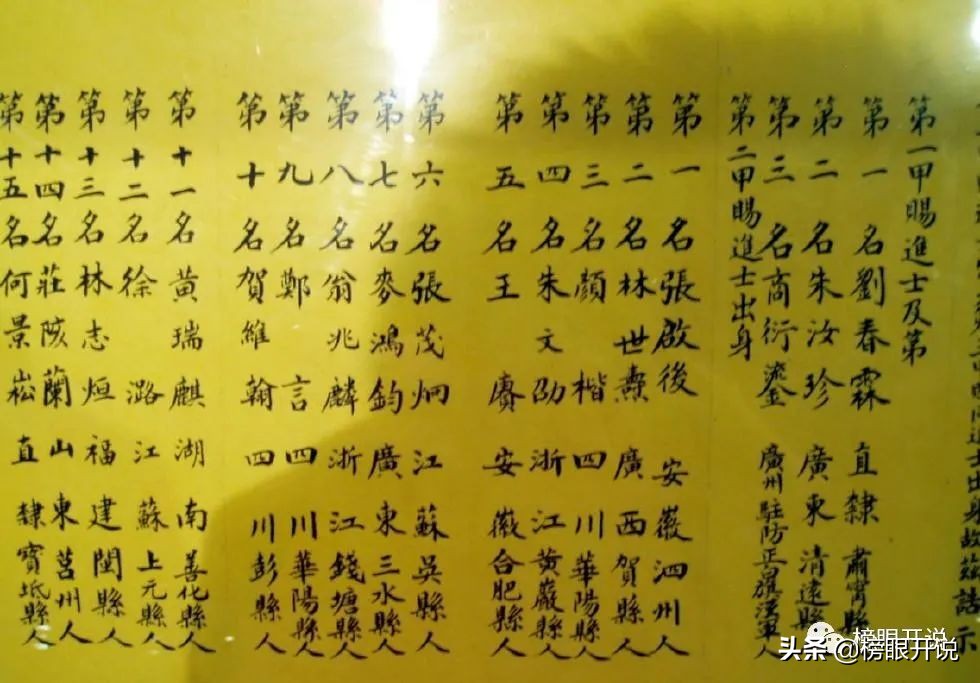 第一甲賜進士及第
第一名劉春霖直隸肅寧縣
第二名朱汝珍廣東清遠縣
第三名商衍鎏廣州駐防正旗漢軍人
第二甲賜進士出身
第一名張啟後安徽泗州人
第二名林世燾廣西賀縣人
第三名顏楷四川華陽縣人
第四名朱文劭浙江黃巖縣人
第五名王賡安徽合肥縣人
第六名張茂炯江蘇吳縣人
第七名麥鴻鈞廣東三水縣人
第八名翁兆麟浙江錢塘縣人
第九名鄭言四川華陽縣人
第十名賀維翰四川彭縣人
第十一名黃瑞麒湖南善化縣人
第十二名徐潞江蘇上元縣人
第十三名林志烜福建閩縣人
第十四名莊陔蘭山東莒州人
第十五名何景崧直隸寶坻縣人
榜眼开说
头条 @榜眼开说